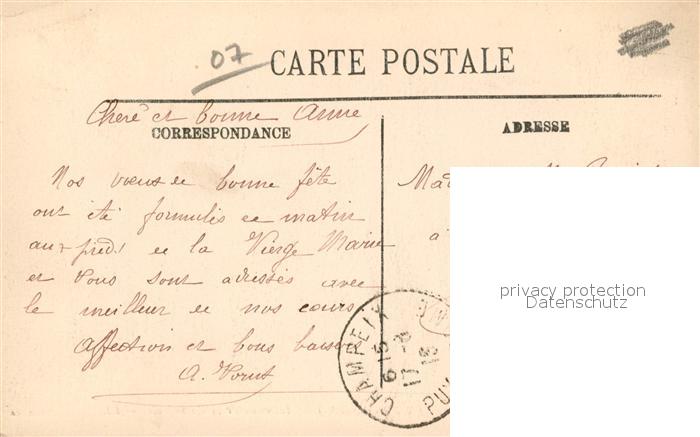 07
CARTE POSTALE
Chère et bonne Anne
CORRESPONDANCE
ADRESSE
Nos voeux de bonne fête
ont été formulés ce matin
aux pieds de la Vierge Marie
et vous sont adressés avec
le meilleur de nos coeurs
Affection et bons baisers
A.
à
CHAMPEIX
PUY
privacy protection
Datenschutz